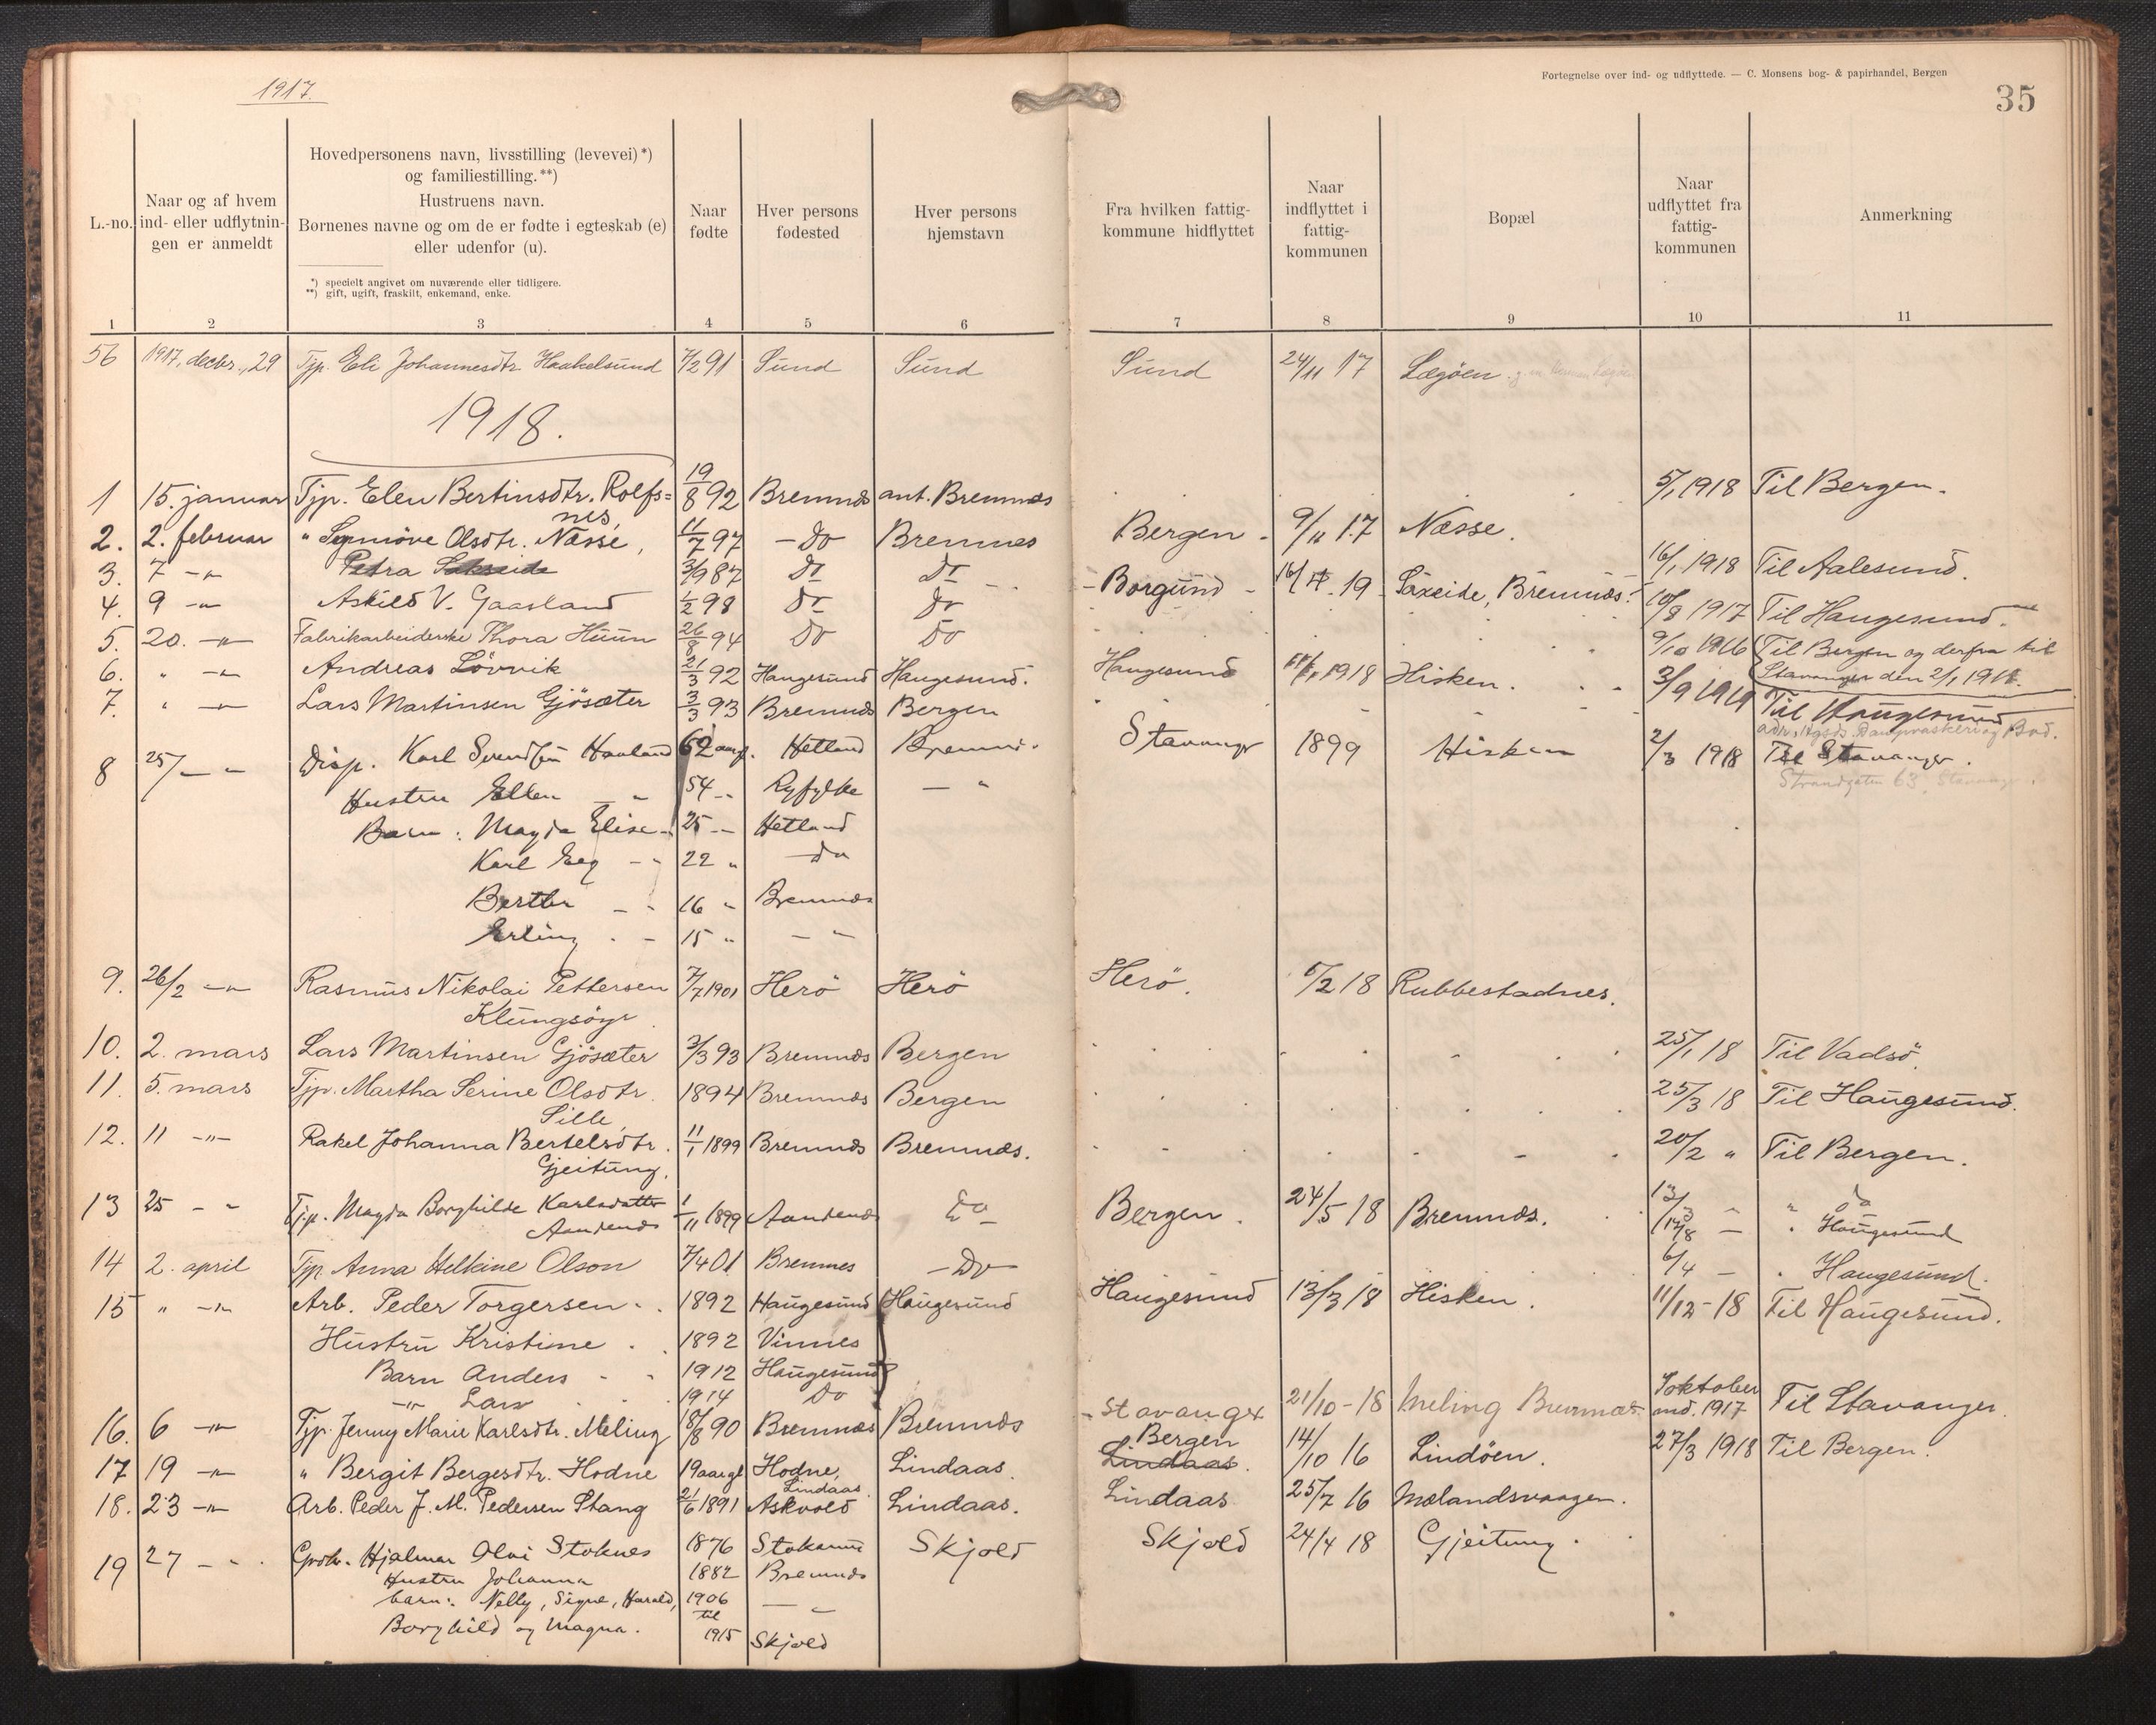 1917.
Fortegnelse over ind- og udflyttede. — C. Monsens bog- & papirhandel, Bergen
35
L.-no.
Naar og af hvem ind- eller udflytnin- gen er anmeldt
Hovedpersonens navn, livsstilling (levevei) *)
og familiestilling. **)
Hustruens navn.
Børnenes navne og om de er fødte i egteskab (e)
eller udenfor (u).
*) specielt angivet om nuværende eller tidligere.
**) gift, ugift, fraskilt, enkemand, enke.
Naar fødte
Hver persons fødested
Hver persons hjemstavn
Fra hvilken fattig- kommune hidflyttet
Naar indflyttet i fattig- kommunen
Bopæl
Naar udflyttet fra fattig- kommunen
Anmerkning
1 2 3 4 5 6 7 8 9 10 11
56 1917, decbr., 29 Tjp. Eli Johannesdtr Haakelsund 7/2 91 Sund Sund Sund 24/11 17 Lægøen.
1918.
1 15. januar Tjp. Elen Bertinsdtr. Rolfs= 19/8 92 Bremnæs ant. Bremnæs 5/1 1918 Til Bergen.
nes,
2. 2. februar " Synnöve Olsdtr. Næsse, 11/7 97 - Do Bremnes Bergen - 9/11 17 Næsse.
3. 7 -"- Petra Sakseide 3/9 87 Do Do - Borgund - 16/4. 19 Saxeide, Bremnæs. 16/1 1918 Til Aalesund.
4. 9 -"- Askild V. Gaasland 1/2 98 Do Do 10/8 1917 Til Haugesund.
5. 20. -"- Fabrikarbeiderske Thora Huun 26/8 94 Do Do 9/10 1916 Til Bergen og derfra til
Stavanger den 2/1 1918.
6. " -"- Andreas Lövvik 21/3 92 Haugesund Haugesund. Haugesund 1918 Hisken. 3/9 1919 Til Haugesund
7. " -"- Lars Martinsen Gjösæter 3/3 93 Bremnæs Bergen
8 25/- - Disp. Karl Svendsen Haaland 62 aar gl. Hetland Bremnæs. Stavanger 1899 Hisken 2/3 1918 Til Stavanger.
Strandgaten 63, Stavanger.
Hustru Ellen - " 54 - Ryfylke - "
Barn: Magda Elise - 25 -- Hetland
Karl Eeg - " 22 " - do
Berthe - - 16 " Bremnæs
Erling . - 15 " - "
9. 26/2 -"- Rasmus Nikolai Pettersen 7/7 1901 Herö Herö Herö. 6/2 18 Rubbestadnes.
Klungsöyr
10. 2. mars Lars Martinsen Gjösæter 3/3 93 Bremnæs Bergen 25/1 18 Til Vadsö.
11. 5. mars Tjp. Martha Serine Olsdtr. 1894 Bremnæs Bergen 25/3 18 Til Haugesund.
Sille,
12. 11 -"- Rakel Johanna Bertelsdtr. 11/1 1899 Bremnæs Bremnæs. 20/2 " Til Bergen.
Gjeitung,
13 25 - " Tjp. Magda Borghilde Karlsdatter 1/11 1899 Aandenæs Do Bergen. 24/5 18 Bremnæs. 13/3 - " do
Aandenæs 14/8 - " Haugesund
14 2. april Tjp. Anna Helkine Olson 7/4 01 Bremnes - Do - 6/4 - " Haugesund.
15 " -"- Arb. Peder Torgersen . 1892 Haugesund Haugesund Haugesund 13/3 18 Hisken. 11/12-18 Til Haugesund.
Hustru Kristine . 1892 Vinnes
Barn Anders - - 1912 Haugesund
-"- Lars 1914 Do
16. 6 -"- Tjp. Jenny Marie Karlsdtr. Meling 18/8 90 Bremnæs Bremnæs - Stavanger 21/10-18 Meling Bremnæs. I oktober md. 1917 Til Stavanger.
17 19 -"- " Bergit Bergesdtr. Hodne 19 aar gl. Hodne, Lindaas Lindaas. Bergen Lindaas. 14/10 16 Lindöen. 27/3 1918 Til Bergen.
18. 23 -"- Arb. Peder J. M. Pedersen Stang 21/6 1891 Askvold Lindaas. Lindaas 25/7 16 Mælandsvaagen.
19 27 - ". Grdbr. Hjalmar Olai Stoknes 1876 Stokanæs Skjold Skjold 24/4 18 Gjeitung.
Hustru Johanna 1882 Bremnæs
barn: Nelly, Signe, Harald, 1906 - "
til
Borghild og Magna. 1915 Skjold